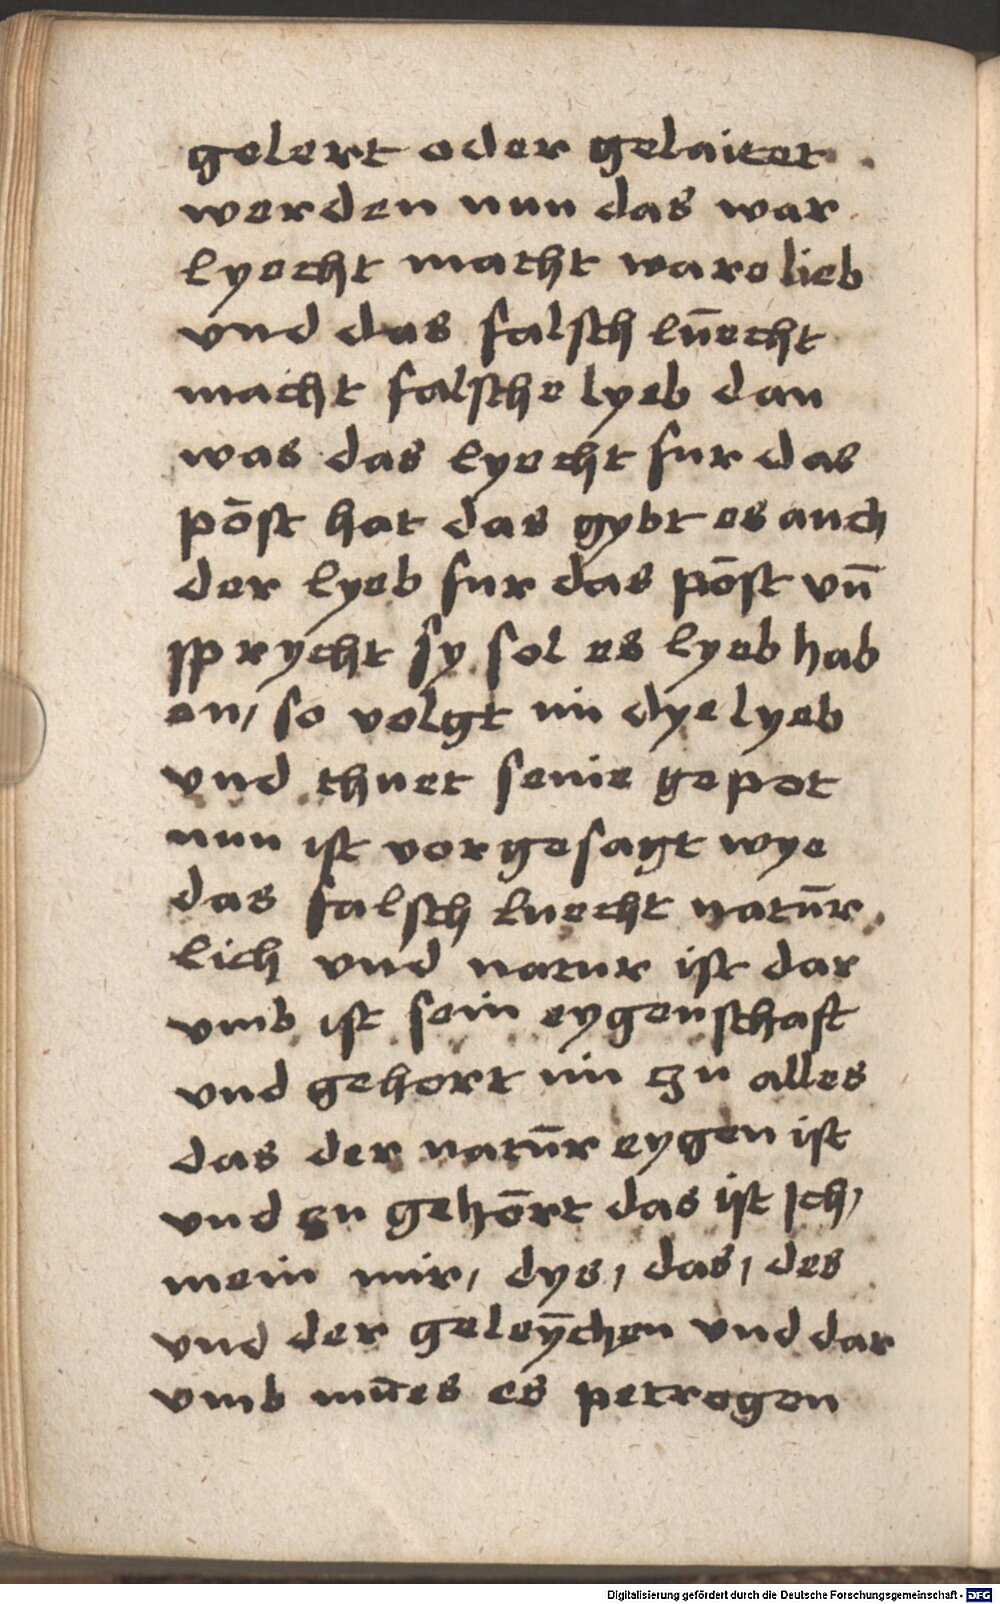 gelert oder gelaitet
werden nun das war
lyecht macht ware lieb
vnd das falsch lūecht
macht falsche lyeb dan
was das lyecht fur das
pōst hat das gybt es auch
der lyeb fur das pōst vn̄
sprycht sy sol es lyeb hab
en, so volgt im dye lyeb
vnd thuet seine gepot
nun ist vor gesagt wye
das falsch luecht natūr
lich vnd natur ist dar
vmb ist sein eygenschaft
vnd gehort im zu alles
das der natūr eygen ist
vnd zu gehōrt das ist Ich,
mein mir, dys, das, des
vnd der geleȳchen vnd dar
vmb mūes es petrogen
Digitalisierung gefördert durch die Deutsche Forschungsgemeinschaft - DFG